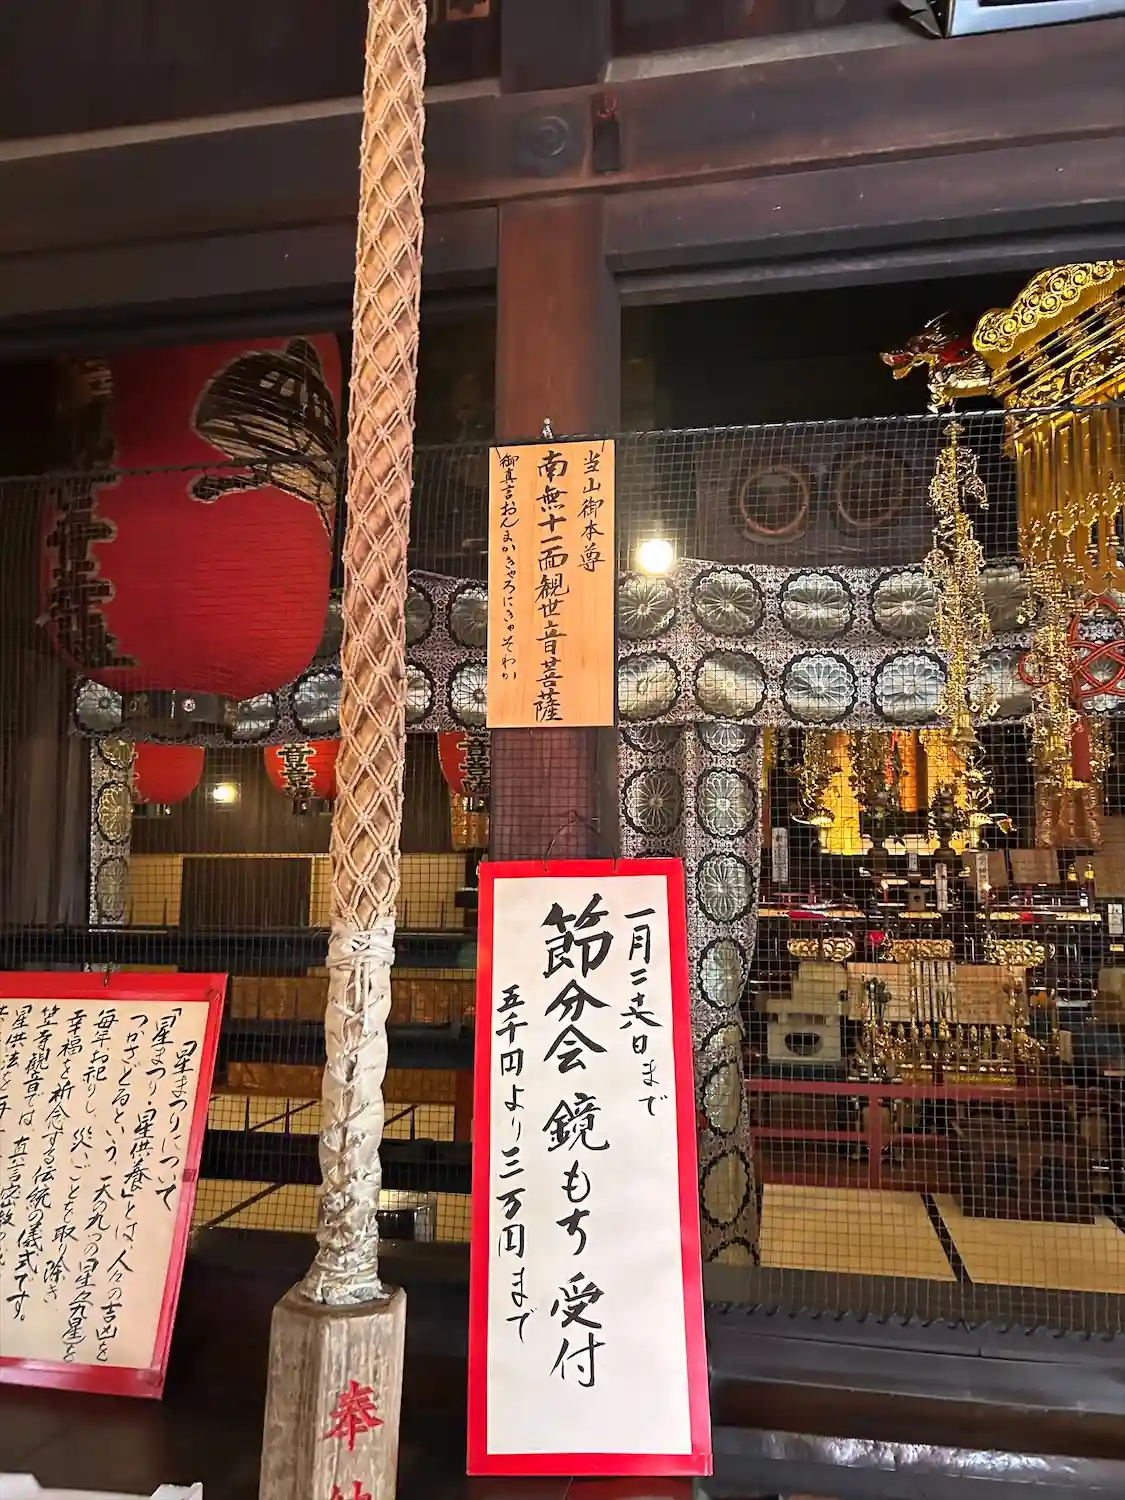 当山御本尊
南無十一面観世音菩薩
御真言おんまかきゃろにきゃそわか
一月二十八日まで
節分会 鏡もち 受付
五千円より三万円まで
「星まつりについて
「星まつり・星供養」とは、人々の吉凶を
つかさどるという、天の九つの星々九星を
毎年お祀りし、災いごとを取り除き
幸福を祈念する伝統の儀式です。
笠寺観音では、真言密教の
星供法を
奉